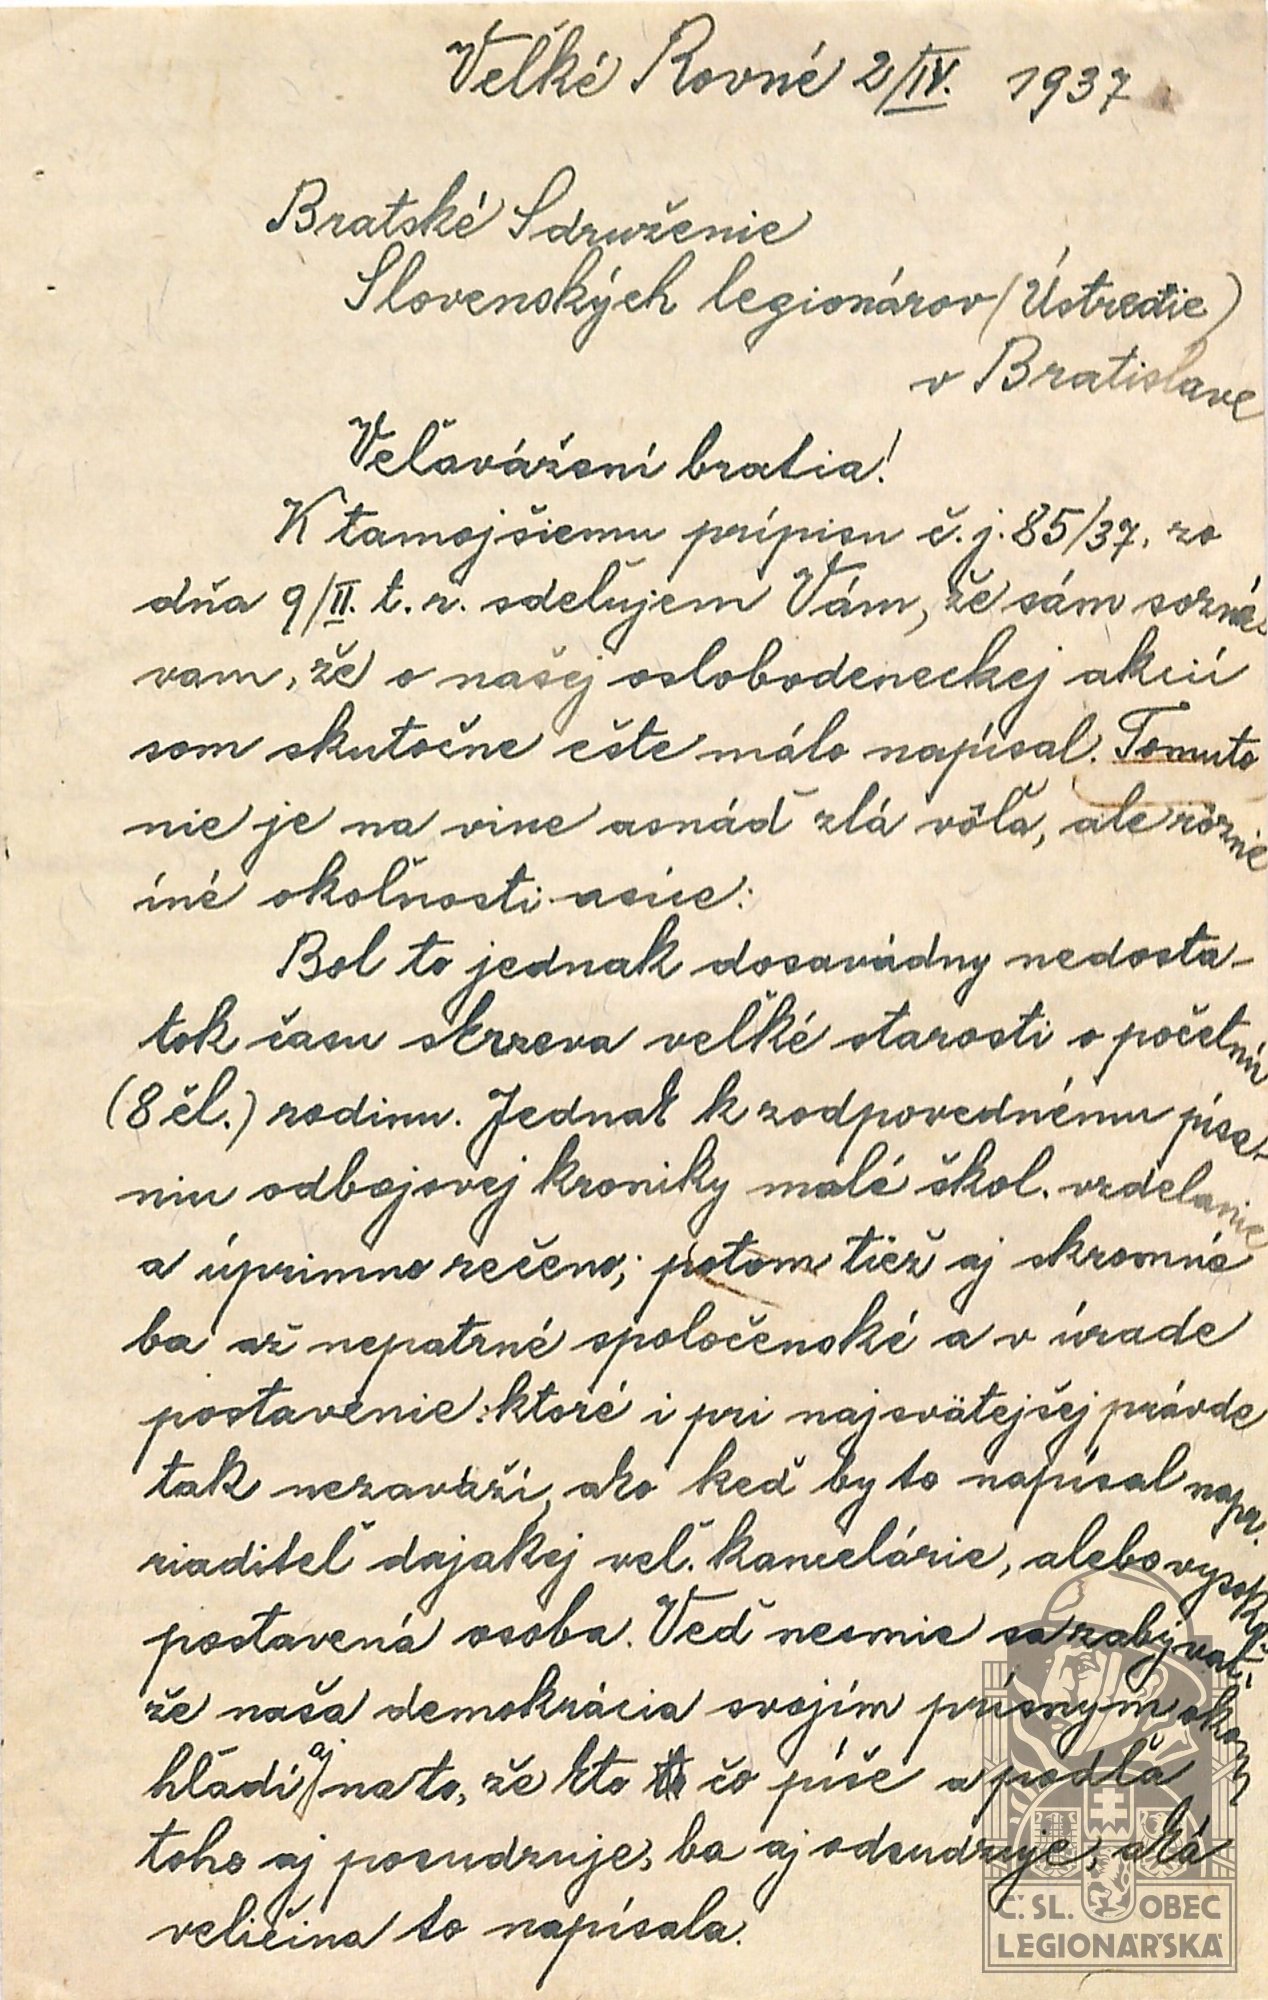 Veľké Rovné 2/IV. 1937
Bratské Sdruženie
Slovenských legionárov (Ústredie)
v Bratislave
Veľavážení bratia!
K tamojšiemu prípisu č. j. 85/37. zo
dňa 9/II. t. r. sdeľujem Vám, že sám sozná-
vam, že o našej oslobodeneckej akcií
som skutočne ešte málo napísal. Tomuto
nie je na vine asnáď zlá vôľa, ale rôzne
iné okoľnosti asice:
Bol to jednak dosavádny nedosta-
tok času skrzeva veľké starosti o početnú
(8 čl.) rodinu. Jednak k zodpovednému písa-
niu odbojovej kroniky malé škol. vzdelanie
a úprimno rečeno; potom tiež aj skromné
ba až nepatrné spoločenské a v úrade
postavenie: ktoré i pri najsvätejšej právde
tak nezaváži, ako keď by to napísal napr.
riaditeľ dajakej veľ. kancelárie, alebo vysoko
postavená osoba. Veď nesmie sa zabývať,
že naša demokrácia svojím prísnym okom
hľadí aj na to, že kto čo píše a podľa
toho aj posudzuje, ba aj odsudzuje, aká
veličina to napísala.
Č. SL. OBEC
LEGIONÁŘSKÁ